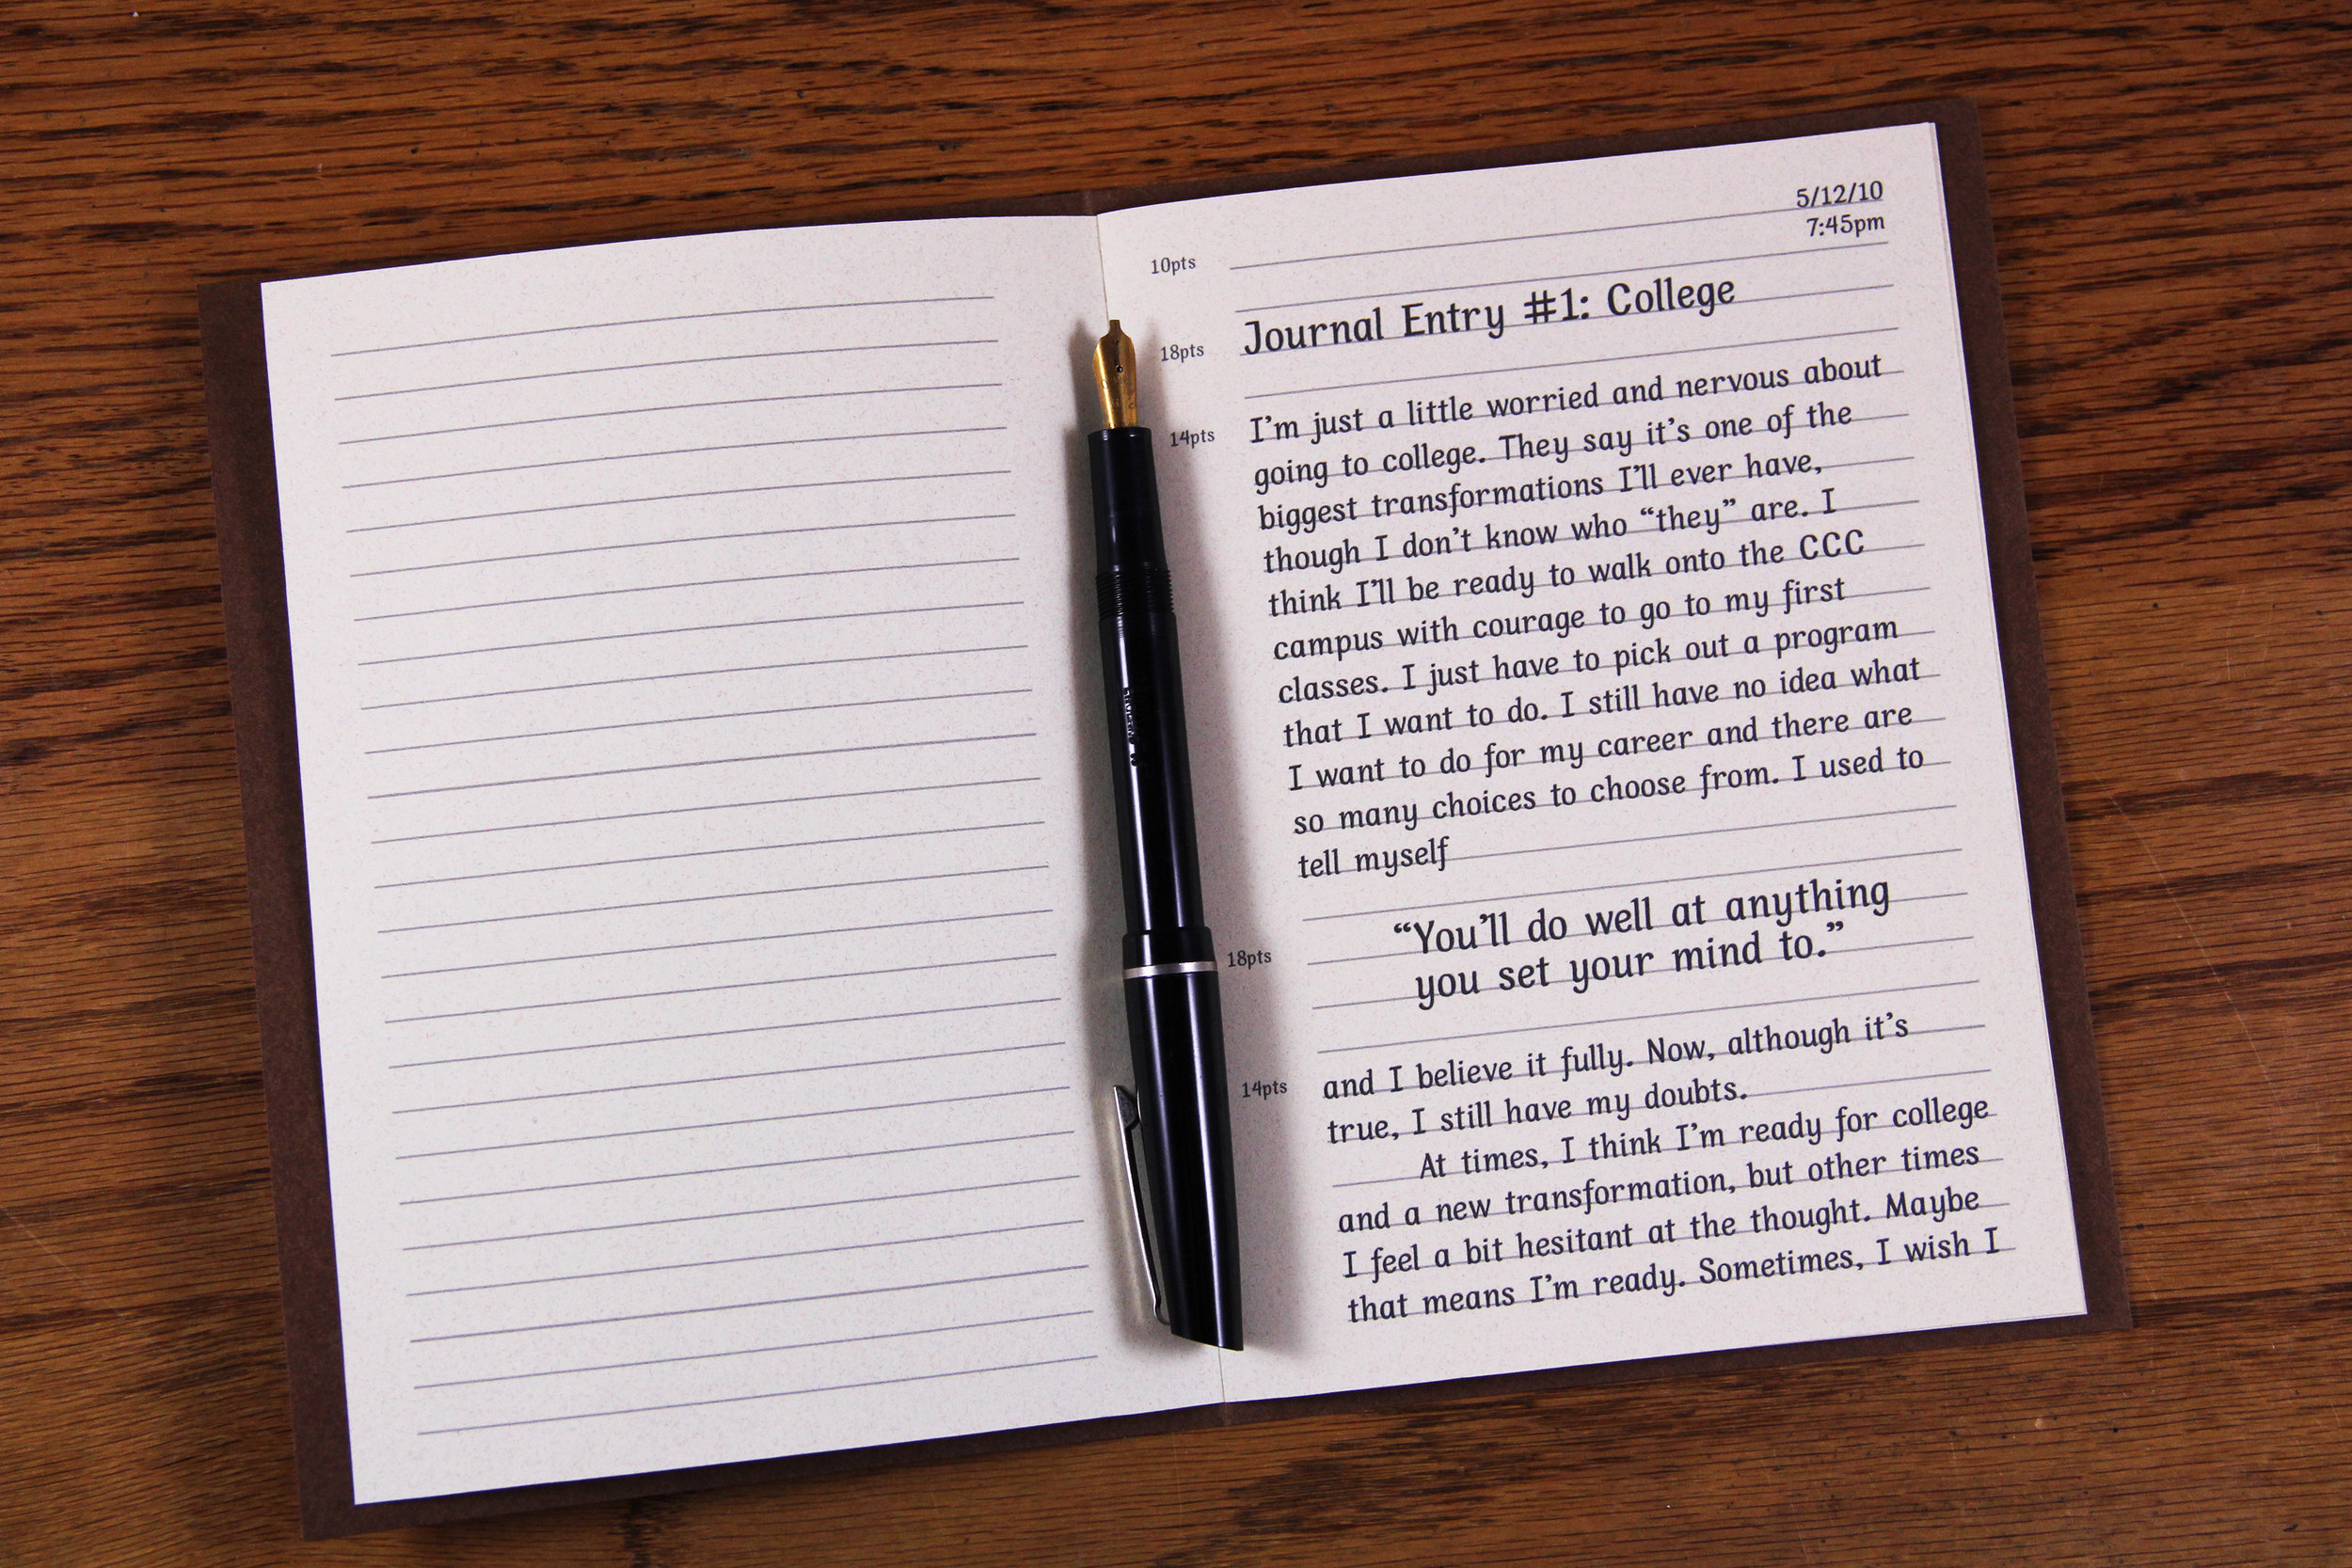 5/12/10
7:45pm
10pts
Journal Entry #1: College
18pts
I'm just a little worried and nervous about
14pts
going to college. They say it's one of the
biggest transformations I'll ever have,
though I don't know who “they” are. I
think I'll be ready to walk onto the CCC
campus with courage to go to my first
classes. I just have to pick out a program
that I want to do. I still have no idea what
I want to do for my career and there are
so many choices to choose from. I used to
tell myself
“You'll do well at anything
18pts
you set your mind to.”
and I believe it fully. Now, although it's
14pts
true, I still have my doubts.
At times, I think I'm ready for college
and a new transformation, but other times
I feel a bit hesitant at the thought. Maybe
that means I'm ready. Sometimes, I wish I